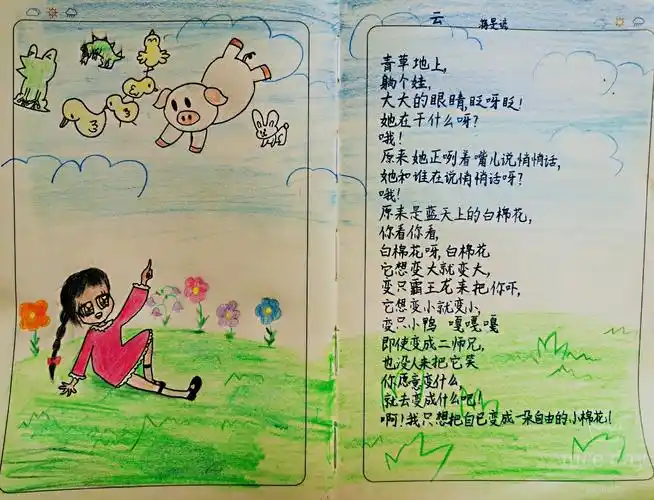 云
青草地上,
躺个娃,
大大的眼睛,眨呀眨!
她在干什么呀?
哦!
原来她正咧着嘴儿说悄悄话,
她和谁在说悄悄话呀?
哦!
原来是蓝天上的白棉花,
你看你看,
白棉花呀,白棉花
它想变大就变大,
变只霸王龙来把你吓,
它想变小就变小,
变只小鸭 嘎嘎嘎
即使变成二师兄,
也没人来把它笑
你愿意变什么,
就去变成什么吧!
啊!我只想把自己变成一朵自由的小棉花!